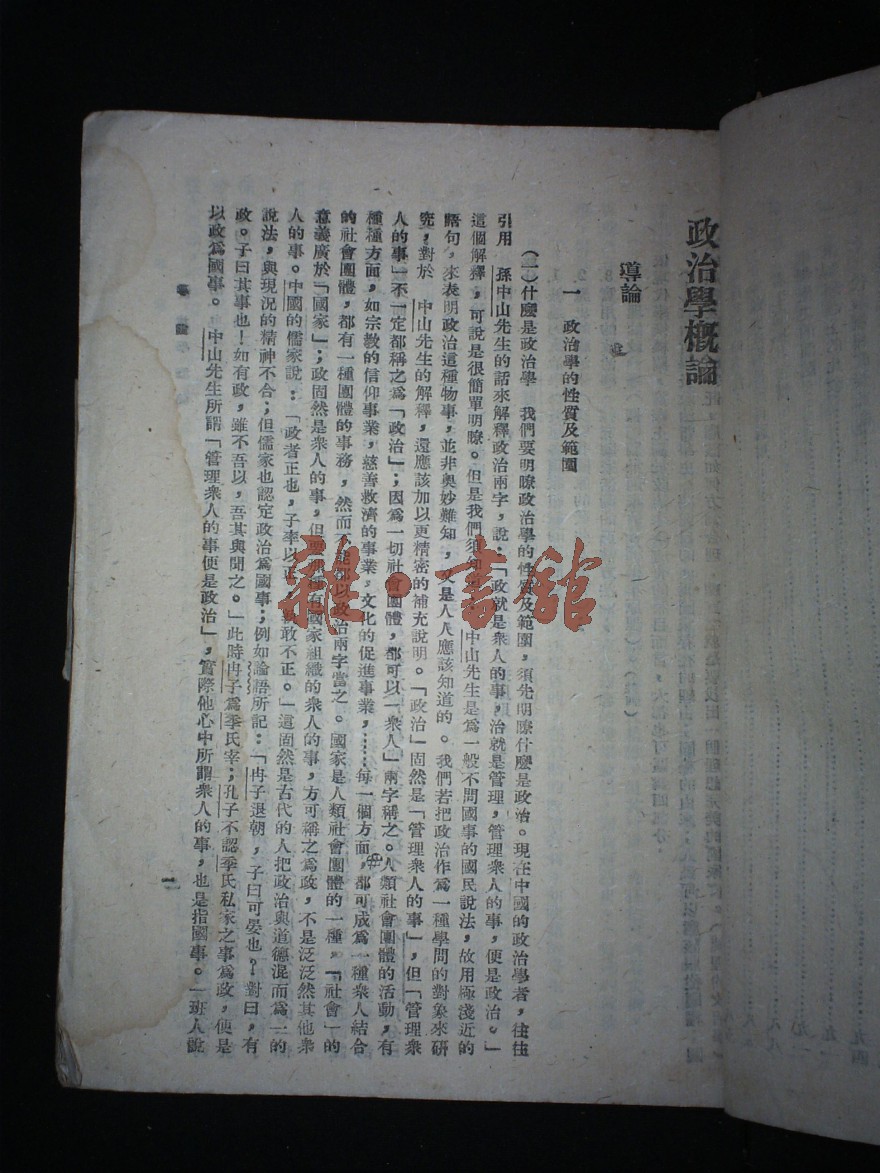 政治學概論
導論
一　政治學的性質及範圍
(一)什麼是政治學　我們要明瞭政治學的性質及範圍，須先明瞭什麼是政治。現在中國的政治學者，往往
引用　孫中山先生的話來解釋政治兩字，說：「政就是衆人的事，治就是管理，管理衆人的事，便是政治。」
這個解釋，可說是很簡單明瞭。但是我們須知　中山先生是爲一般不問國事的國民說法，故用極淺近的
語句，來表明政治這種物事，並非奧妙難知，又是人人應該知道的。我們若把政治作爲一種學問的對象來研
究，對於　中山先生的解釋，還應該加以更精密的補充說明。「政治」固然是「管理衆人的事」，但「管理衆
人的事」不一定都稱之爲「政治」；因爲一切社會團體，都可以「衆人」兩字稱之。人類社會團體的活動，有
種種方面，如宗教的信仰事業，慈善救濟的事業，文化的促進事業，……每一個方面，都可成爲一種衆人結合
的社會團體，都有一種團體的事務，然而不能都以政治兩字當之。國家是人類社會團體的一種，「社會」的
意義廣於「國家」；政固然是衆人的事，但要那種有國家組織的衆人的事，方可稱之爲政，不是泛泛然其他衆
人的事。中國的儒家說：「政者正也，子率以正，孰敢不正。」這固然是古代的人把政治與道德混而爲一的
說法，與現況的精神不合；但儒家也認定政治爲國事；例如論語所記：「冉子退朝，子曰可晏也？對曰，有
政。子曰其事也！如有政，雖不吾以，吾其與聞之。」此時冉子爲季氏宰；孔子不認季氏私家之事爲政，便是
以政爲國事。　中山先生所謂「管理衆人的事便是政治」，實際他心中所謂衆人的事，也是指國事。一班人說
導　論
一
雜·書館